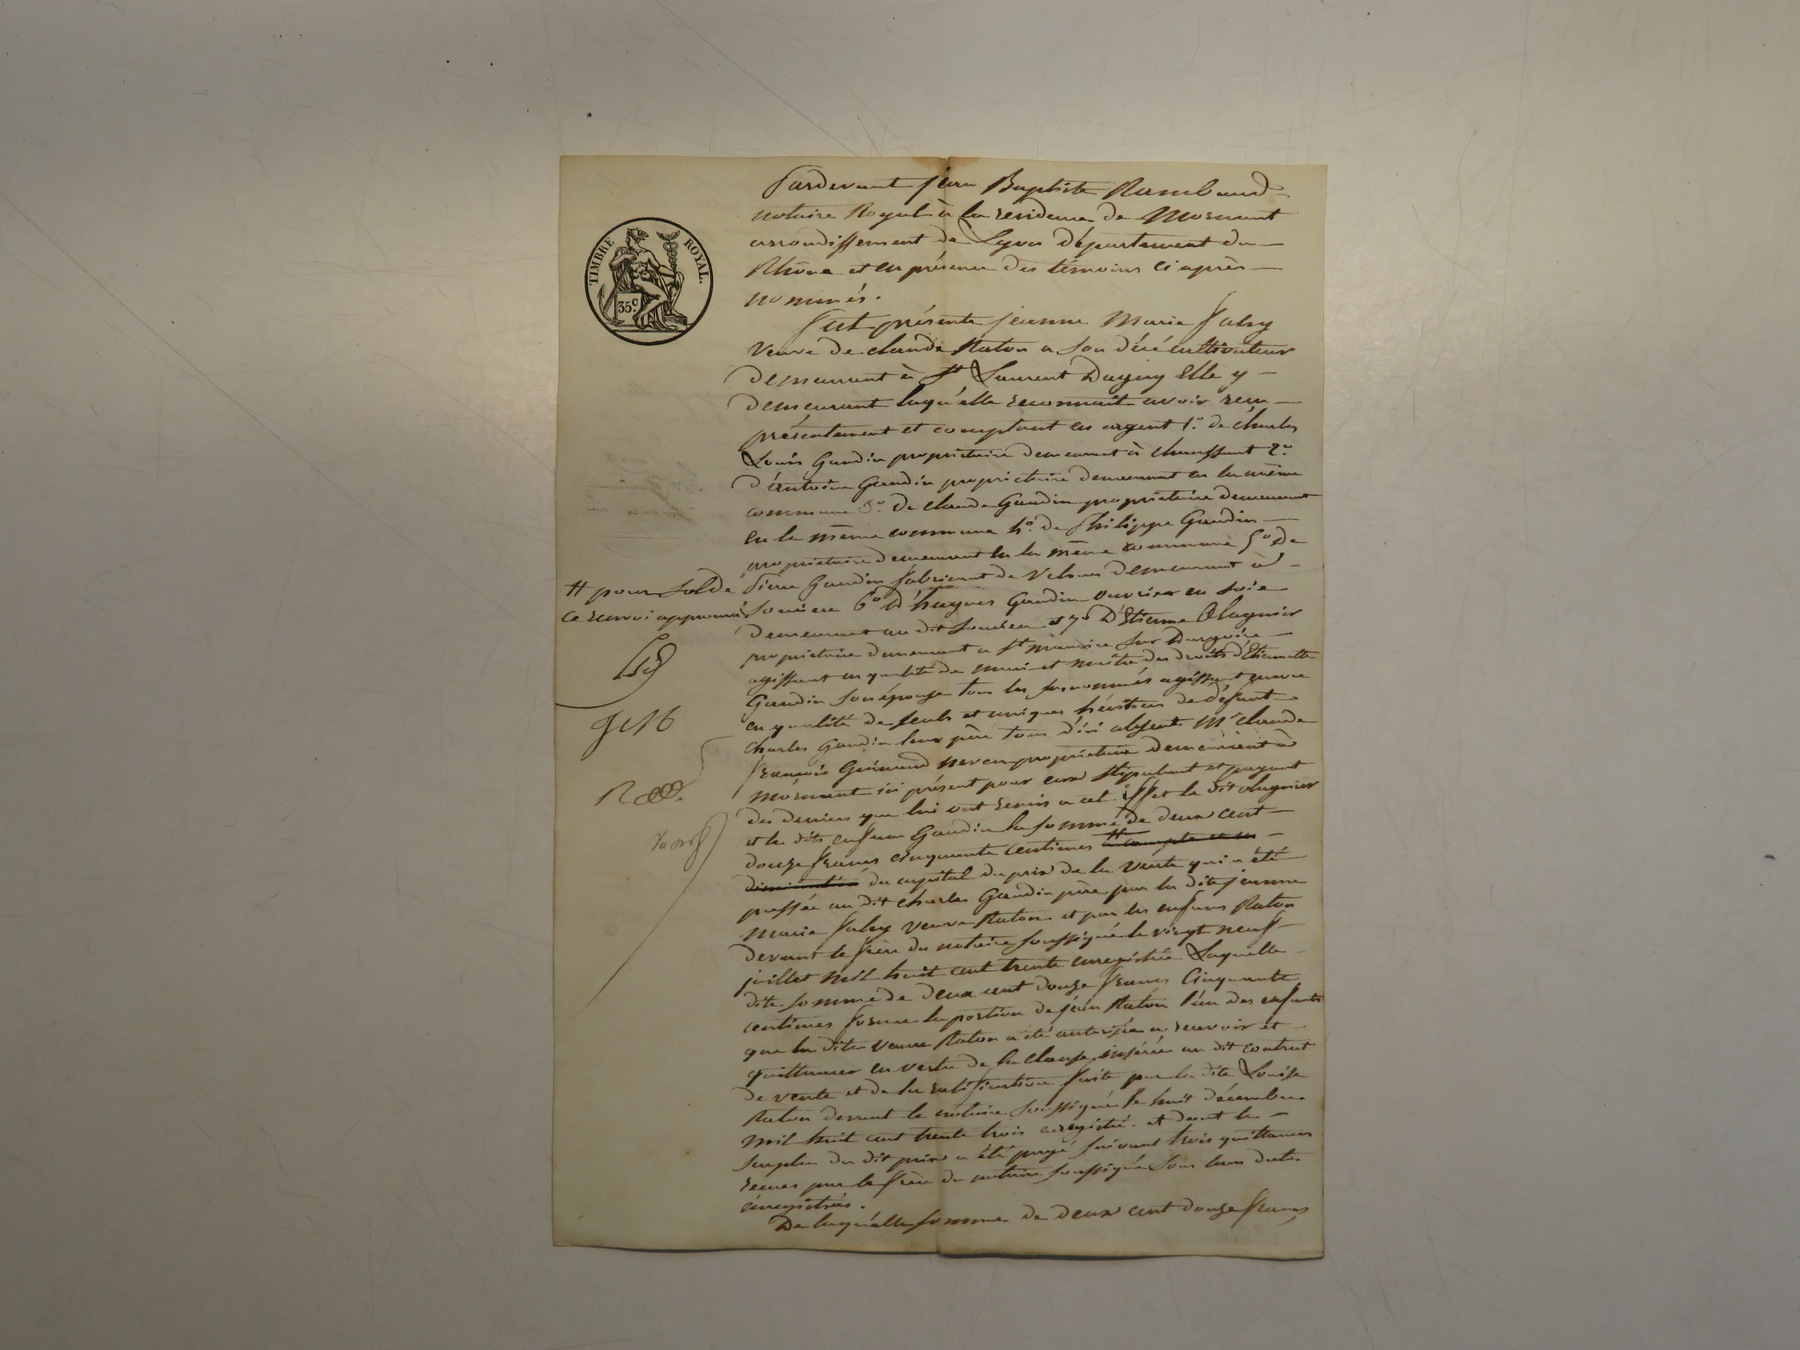 TIMBRE ROYAL.
35c
Pardevant Jean Baptiste Rambaud
notaire Royal à la residence de Mornant
arrondissement de Lyon département du
Rhône et en présence des témoins ci après
nommés.
Fut présente jeanne Marie
veuve de claude Raton a son décé cultivateur
demeurant à St Laurent Dagny elle y
demeurant laqu'elle reconnait avoir reçu
présentement et comptant en argent 1o. de charles
Louis Gaudin propriétaire demeurant à Chaussant 2o.
d'antoine Gaudin propriétaire demeurant en la même
commune 3o. de claude Gaudin propriétaire demeurant
en la même commune 4o. de Philippe Gaudin
propriétaire demeurant en la même commune 5o. De
pierre Gaudin fabricant de velours demeurant à
6o d'hugues Gaudin ouvrier en soie
demeurant au dit et 7o D'Etienne Olagnier
propriétaire demeurant a St maurice sur Dargoire
agissant en qualité de mari et maître des droits d'Etiennette
Gaudin son épouse tous les susnommés agissant encore
en qualité de seuls et uniques héritiers de défunt
Charles Gaudin leur père tous d'ici absents Mr claude
françois propriétaire demeurant à
Mornant ici présent pour eux stipulant et payant
des deniers que lui ont remis a cet effet le dit olagnier
et les dits enfans Gaudin la somme de deux cent
douze francs cinquante centimes
du capital du prix de la vente qui a été
passée au dit Charles Gaudin père par la dite jeanne
Marie veuve Raton et par les enfans Raton
devant le frère du notaire soussigné le vingt neuf
juillet mil huit cent trente enregistrée Laquelle
dite somme de deux cent douze francs Cinquante
centimes forme la portion de jean Raton l'un des enfants
que la dite veuve Raton a été autorisée a recevoir et
quittancer en vertu de la clause insérée au dit contrat
de vente et de la ratification faite par la dite Louise
Raton devant le notaire soussigné le huit décembre
mil huit cent trente trois enregistré. et dont le
surplus du dit prix a été payé suivant trois quittances
recues par le frère du notaire soussigné sous leurs dates
enregistrées.
De laqu'elle somme de deux cent douze francs
# pour solde
ce renvoi approuvé